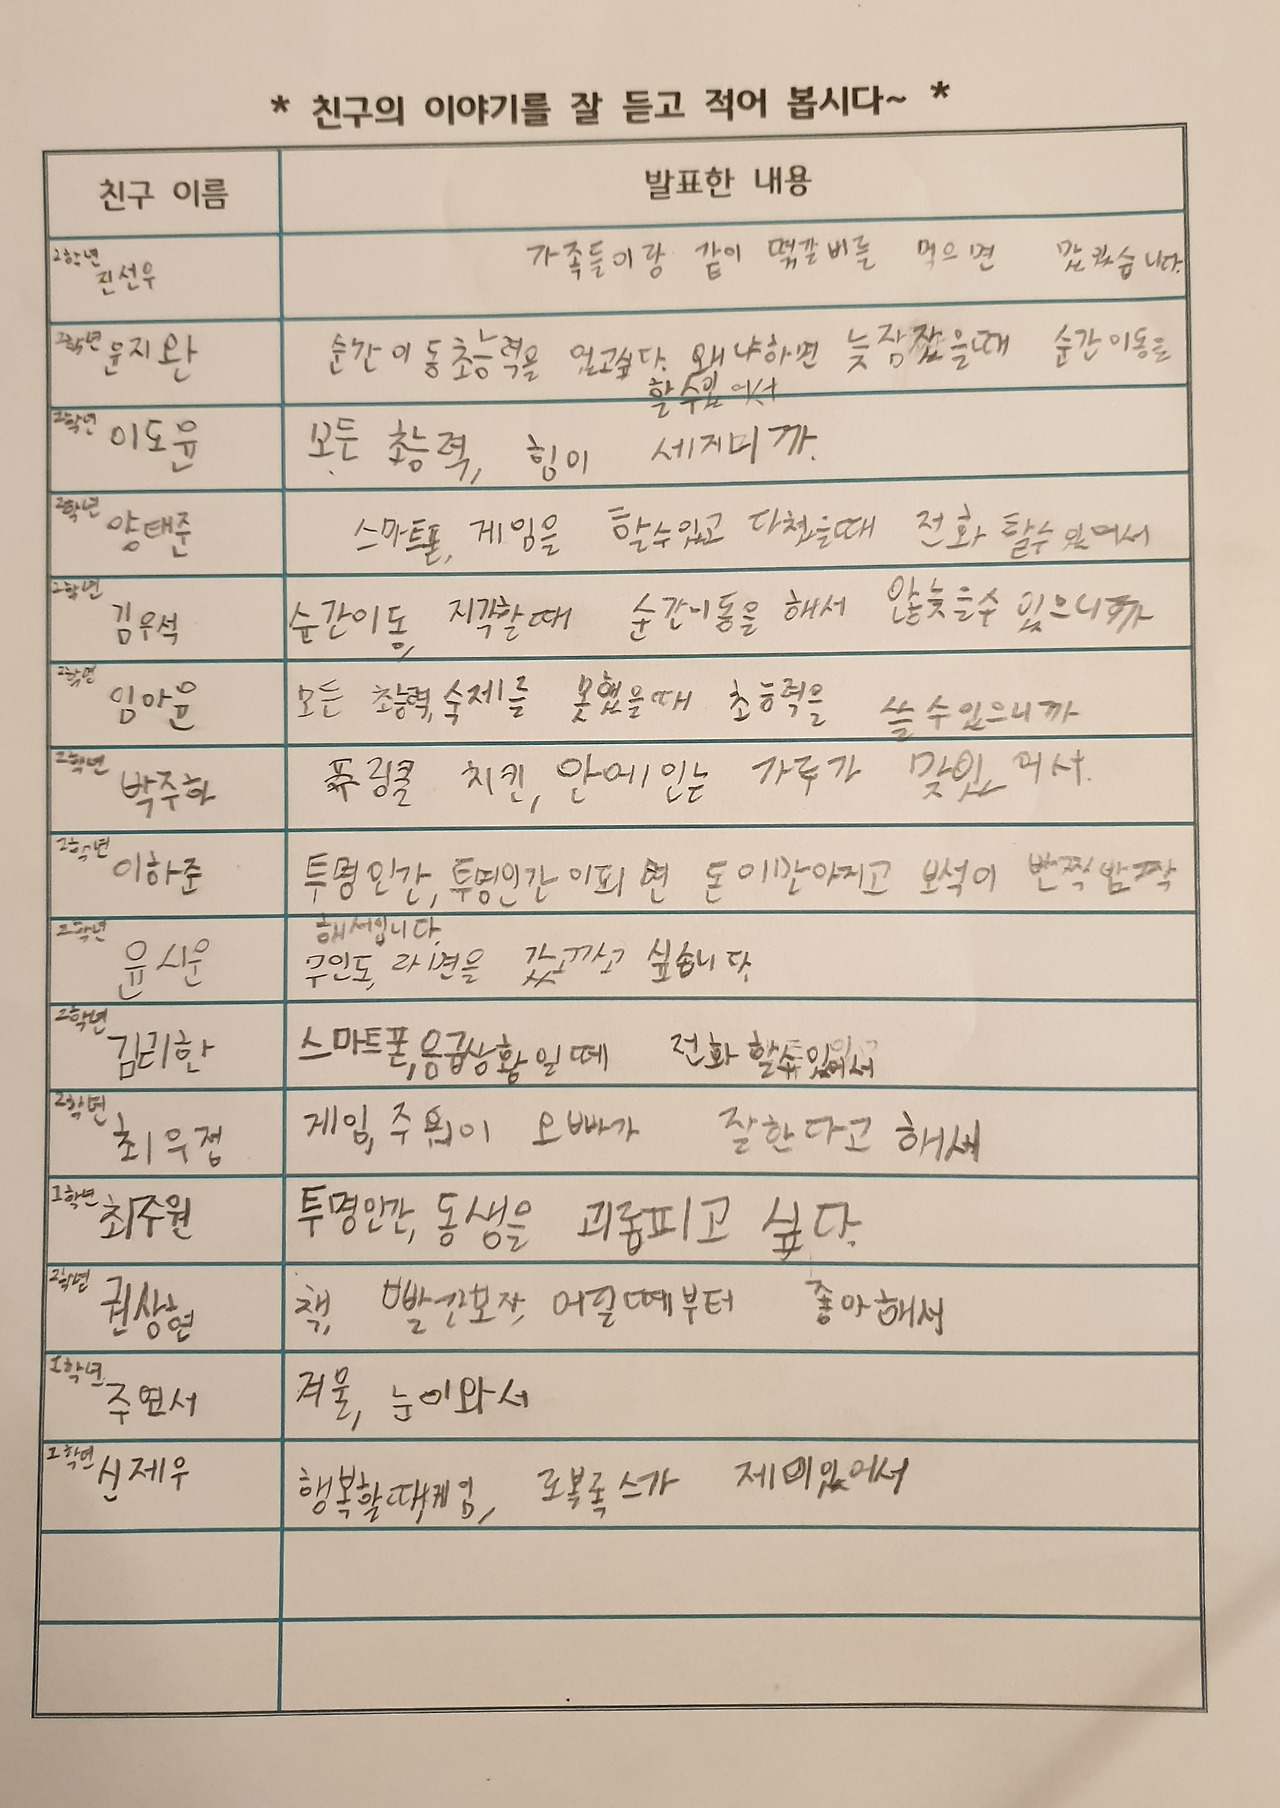 * 친구의 이야기를 잘 듣고 적어 봅시다~ *
친구 이름 발표한 내용
2학년 진선우 가족들이랑 같이 떡갈비를 먹으면
2학년 윤지완 순간이동초능력을 얻고싶다. 왜냐하면 늦잠잤을때 순간이동을
할수있어서
2학년 이도윤 모든 초능력, 힘이 세지니까.
2학년 양태준 스마트폰, 게임을 할수있고 다쳤을때 전화 할수있어서
2학년 김우석 순간이동, 지각할때 순간이동을 해서 않늦을수 있으니까
2학년 임아윤 모든 초능력, 숙제를 못했을때 초능력을 쓸수있으니까
2학년 박주하 퓨링클 치킨, 안에인는 가루가 맞있어서.
2학년 이하준 투명인간, 투명인간이피면 돈이만아지고 보석이 반짝반짝
해서입니다.
2학년 윤시운 무인도, 라면을 갖고가고 싶습니다.
2학년 김리한 스마트폰, 응급상황일떼 전화할수있어서
2학년 최우정 게임, 오빠가 잘한다고 해서
1학년 최주원 투명인간, 동생을 괴롭피고 싶다.
2학년 권상현 책, 빨간모자, 어릴때부터 좋아해서
1학년 주연서 겨울, 눈이와서
1학년 신제우 행복할때게임, 로복록스가 제미있어서